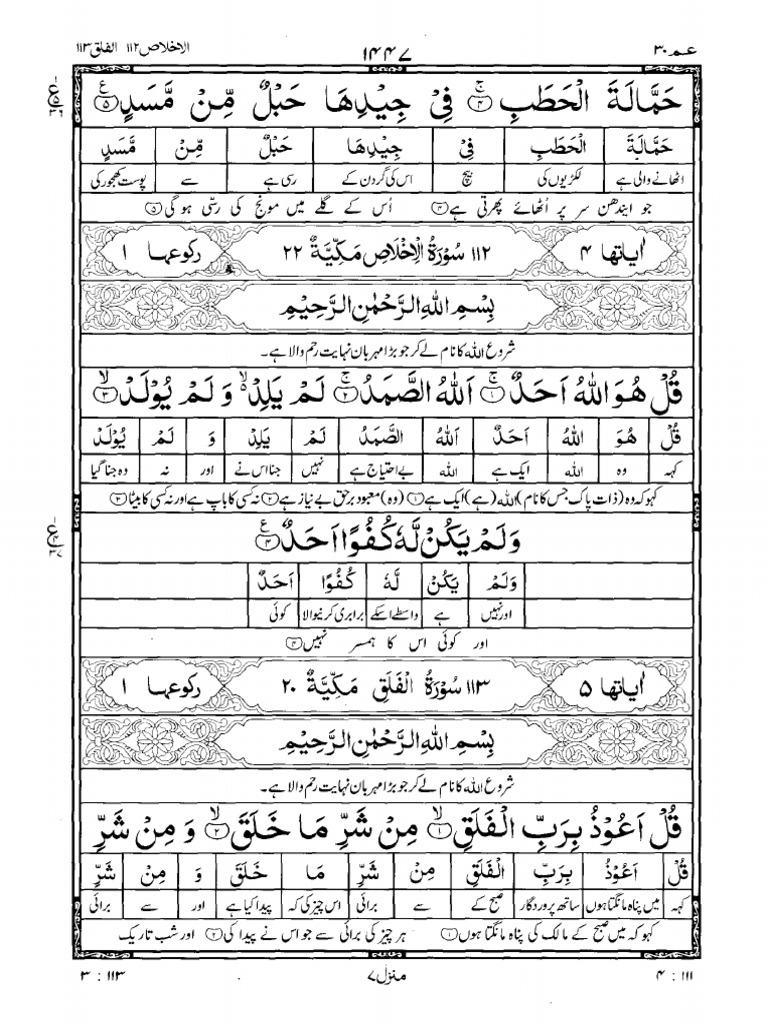 عم ۳۰ ۱۴۴۷ الاخلاص ۱۱۲ الفلق ۱۱۳
حَمَّالَةَ الْحَطَبِ ۚ﴿۴﴾ فِیْ جِیْدِهَا حَبْلٌ مِّنْ مَّسَدٍ ﴿۵﴾ ع
حَمَّالَةَ الْحَطَبِ فِیْ جِیْدِهَا حَبْلٌ مِّنْ مَّسَدٍ
اٹھانے والی ہے لکڑیوں کی بیچ اس کی گردن کے رسی ہے سے پوست کھجور کی
جو ایندھن سر پر اُٹھائے پھرتی ہے ﴿۴﴾ اُس کے گلے میں مونج کی رسّی ہو گی ﴿۵﴾
اٰیاتها ۴ ۱۱۲ سُوْرَةُ الْاِخْلَاصِ مَکِّیَّةٌ ۲۲ رکوعها ۱
بِسْمِ اللهِ الرَّحْمٰنِ الرَّحِیْمِ
شروع الله کا نام لے کر جو بڑا مہربان نہایت رحم والا ہے۔
قُلْ هُوَ اللهُ اَحَدٌ ۚ﴿۱﴾ اَللهُ الصَّمَدُ ۚ﴿۲﴾ لَمْ یَلِدْ ۙ وَ لَمْ یُوْلَدْ ۙ﴿۳﴾
قُلْ هُوَ اللهُ اَحَدٌ اَللهُ الصَّمَدُ لَمْ یَلِدْ وَ لَمْ یُوْلَدْ
کہہ وہ الله ایک ہے الله بے احتیاج ہے نہیں جنا اس نے اور نہ وہ جنا گیا
کہو کہ وہ (ذات پاک جس کا نام) الله (ہے) ایک ہے ﴿۱﴾ (وہ) معبود برحق بے نیاز ہے ﴿۲﴾ نہ کسی کا باپ ہے اور نہ کسی کا بیٹا ﴿۳﴾
وَ لَمْ یَکُنْ لَّهٗ کُفُوًا اَحَدٌ ﴿۴﴾ ع
وَلَمْ یَکُنْ لَّهٗ کُفُوًا اَحَدٌ
اور نہیں ہے واسطے اسکے برابری کرنیوالا کوئی
اور کوئی اس کا ہمسر نہیں ﴿۴﴾
اٰیاتها ۵ ۱۱۳ سُوْرَةُ الْفَلَقِ مَکِّیَّةٌ ۲۰ رکوعها ۱
بِسْمِ اللهِ الرَّحْمٰنِ الرَّحِیْمِ
شروع الله کا نام لے کر جو بڑا مہربان نہایت رحم والا ہے۔
قُلْ اَعُوْذُ بِرَبِّ الْفَلَقِ ۙ﴿۱﴾ مِنْ شَرِّ مَا خَلَقَ ۙ﴿۲﴾ وَ مِنْ شَرِّ
قُلْ اَعُوْذُ بِرَبِّ الْفَلَقِ مِنْ شَرِّ مَا خَلَقَ وَ مِنْ شَرِّ
کہہ میں پناہ مانگتا ہوں ساتھ پروردگار صبح کے سے برائی اس چیز کی کہ پیدا کیا ہے اور سے برائی
کہو کہ میں صبح کے مالک کی پناہ مانگتا ہوں ﴿۱﴾ ہر چیز کی برائی سے جو اس نے پیدا کی ﴿۲﴾ اور شب تاریک
۱۱۱ : ۴ منزل ۷ ۱۱۳ : ۳